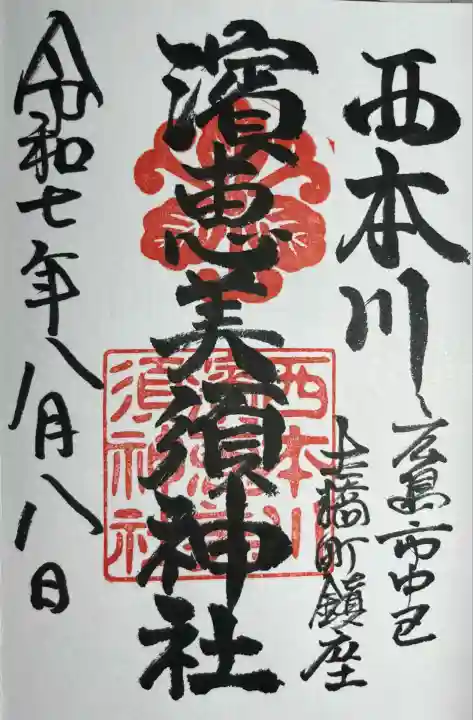 西本川
広島市中区
土橋町鎮座
濱恵美須神社
西本川
濱恵美
須神社
令和七年八月八日